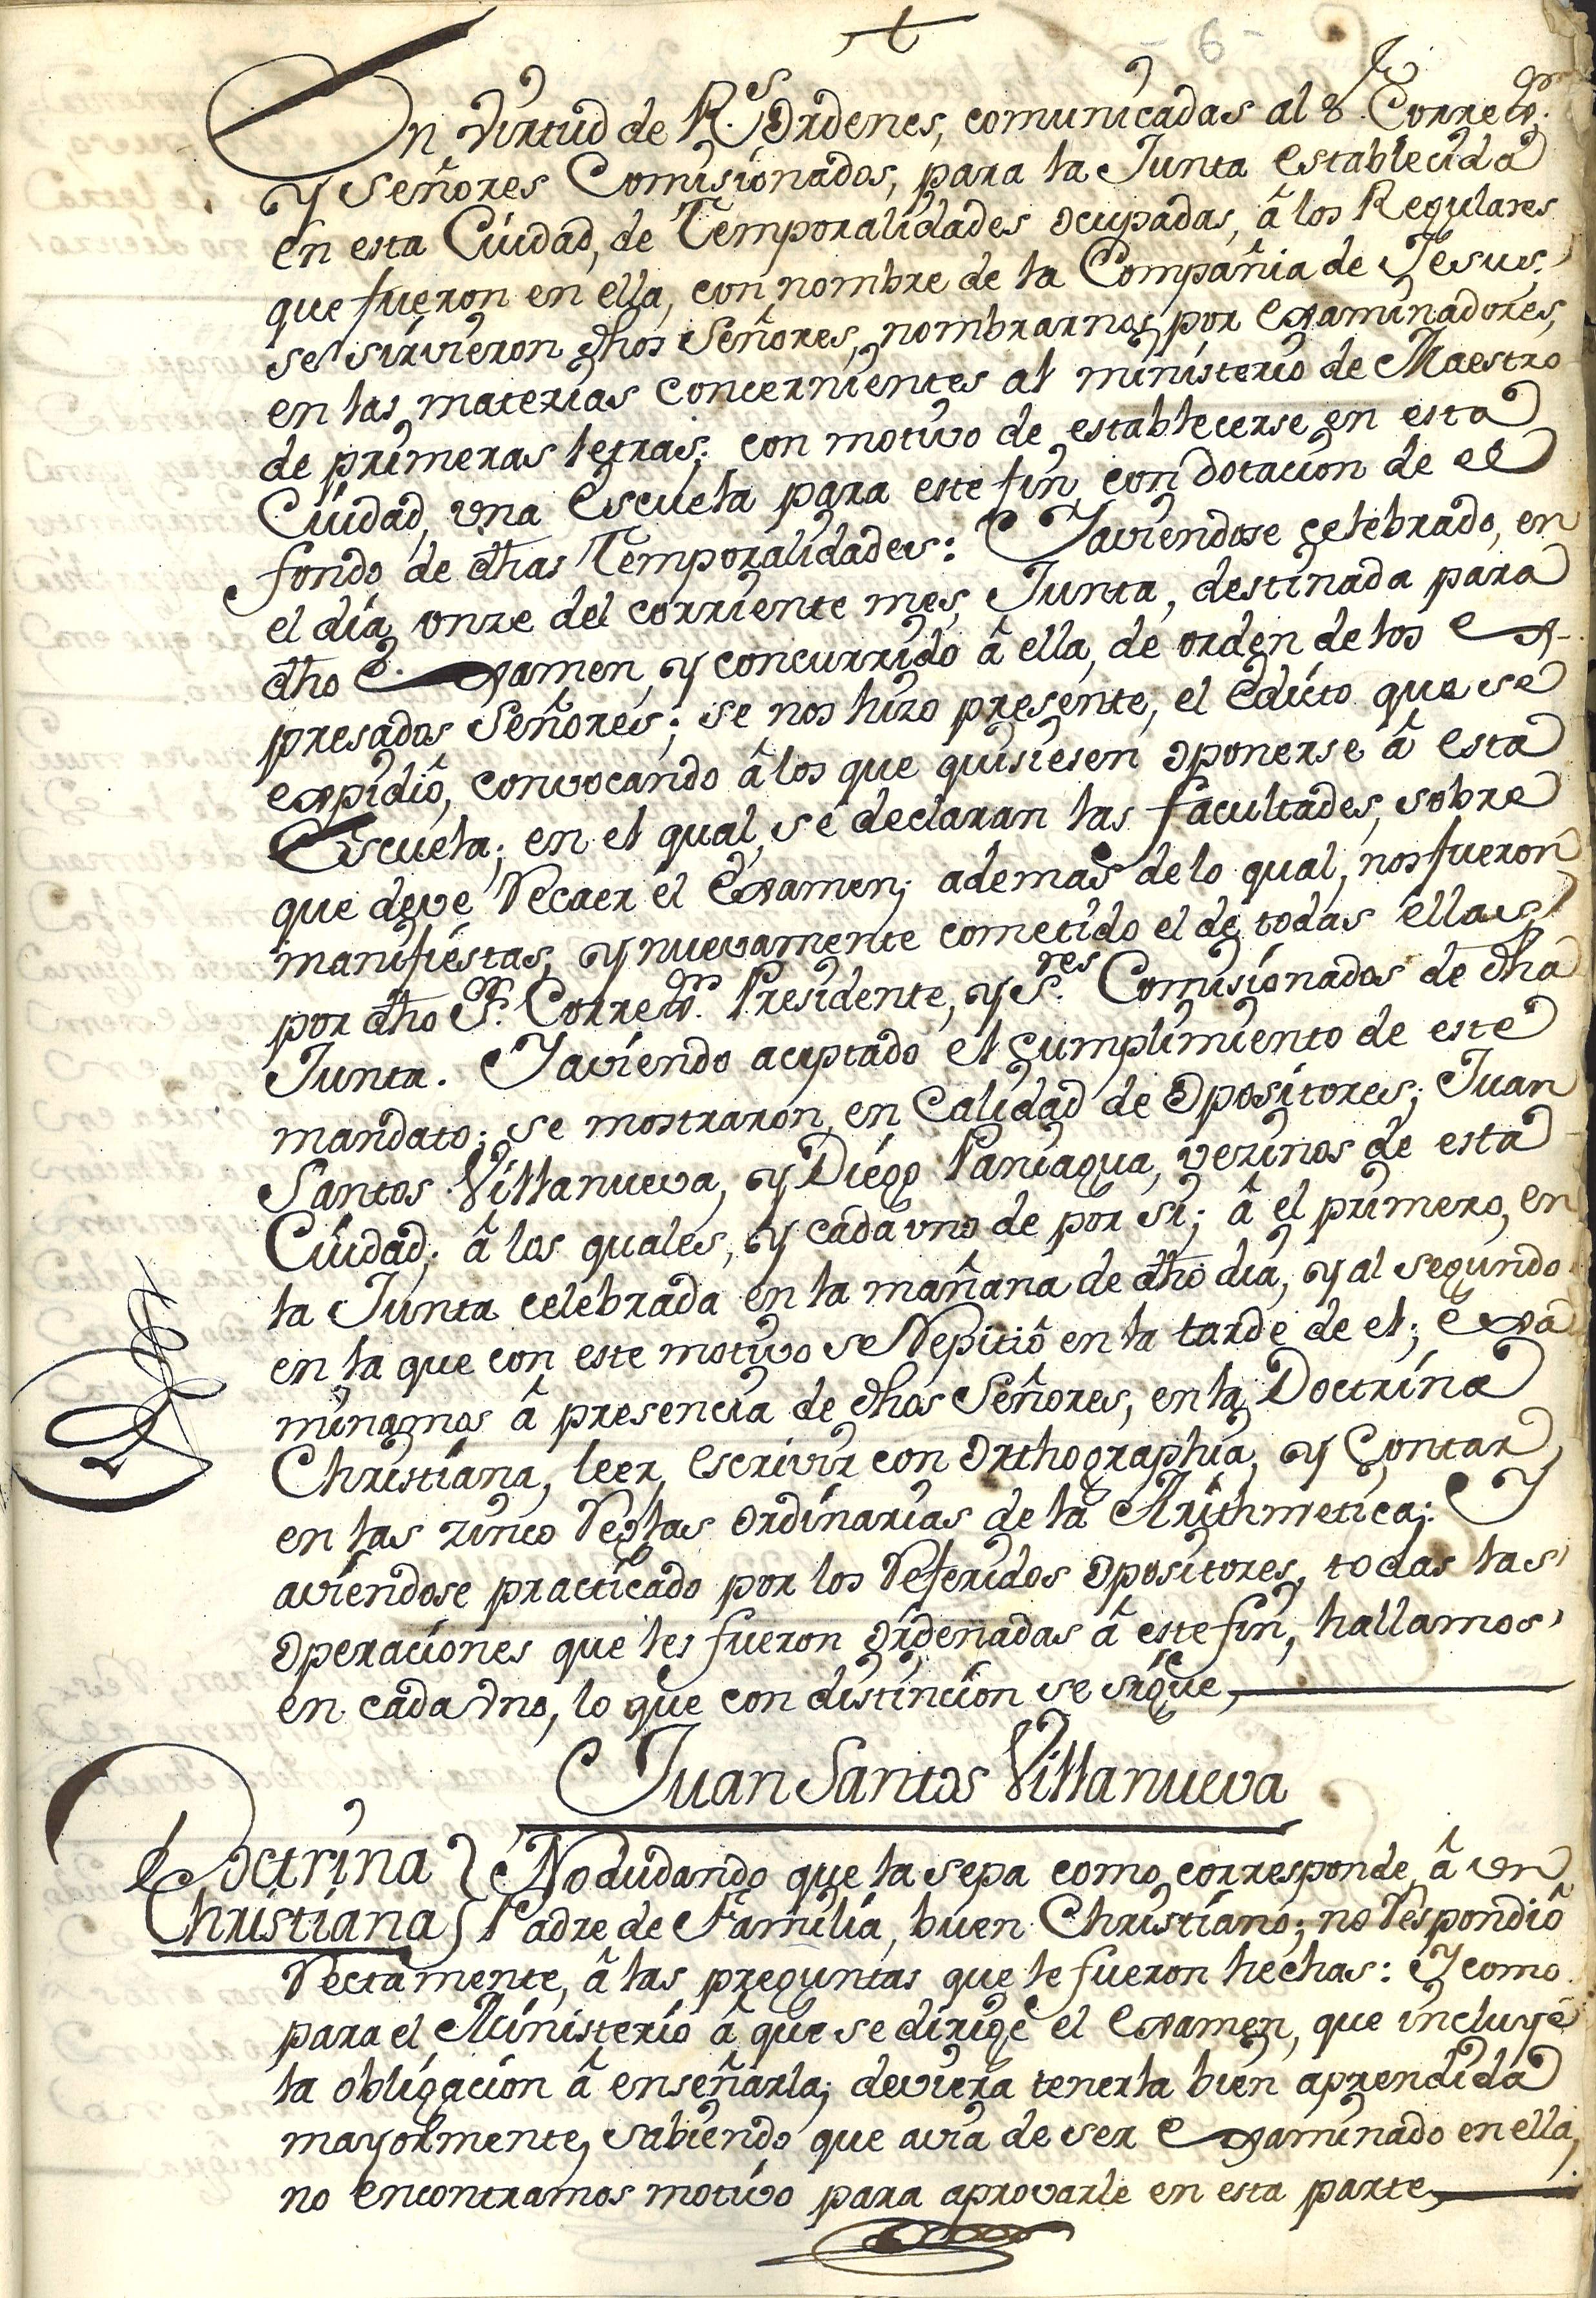 - 6 -
En virtud de R.s Ordenes, comunicadas al Sr. Corregor.
y Señores Comisionados, para la Junta establecida
en esta Ciudad, de Temporalidades ocupadas, â los Regulares
que fueron en ella, con nombre de la Compañia de Jesus;
se sirvieron dhos Señores, nombrarnos por examinadores,
en las materias concernientes al ministerio de Maestro
de primeras letras; con motivo de establecerse en esta
Ciudad, una Escuela para este fin, con dotacion de el
fondo de dhas Temporalidades: Y aviendose celebrado, en
el dia onze del corriente mes, Junta, destinada para
dho Examen, y concurrido â ella, de orden de los ex-
presados Señores; se nos hizo presente, el Edicto que se
expidiô, convocando â los que quisiesen oponerse â esta
Escuela; en el qual, se declaran las facultades, sobre
que deve recaer el Examen; ademas de lo qual, nos fueron
manifiestas, y nuevamente cometido el de todas ellas,
por dho Sr. Corregor. Presidente, y Sres. Comisionados de dha
Junta. Y aviendo aceptado el cumplimiento de este
mandato; se mostraron, en Calidad de Opositores; Juan
Santos Villanueva, y Diego Paniagua, vezinos de esta
Ciudad; â los quales, y cada uno de por si; â el primero, en
la Junta celebrada en la mañana de dho dia, y al segundo
en la que con este motivo se repitiô en la tarde de el; exa
minamos â presencia de dhos Señores, en la Doctrina
Christiana, leer, escrivir con Orthographia, y Contar,
en las zinco reglas ordinarias de la Arithmetica; Y
aviendose practicado por los referidos Opositores, todas las
operaciones que les fueron ordenadas â este fin, hallamos
en cada uno, lo que con distincion se sigue,
Juan Santos Villanueva
Doctrina } No dudando que la sepa como corresponde â un
Christiana } Padre de Familia, buen Christiano; no respondiô
rectamente, â las preguntas que le fueron hechas: Y como
para el Ministerio â que se dirige el Examen, que incluye
la obligacion â enseñarla; deviera tenerla bien aprendida
mayormente, sabiendo que avia de ser examinado en ella,
no encontramos motivo para aprovarle en esta parte,